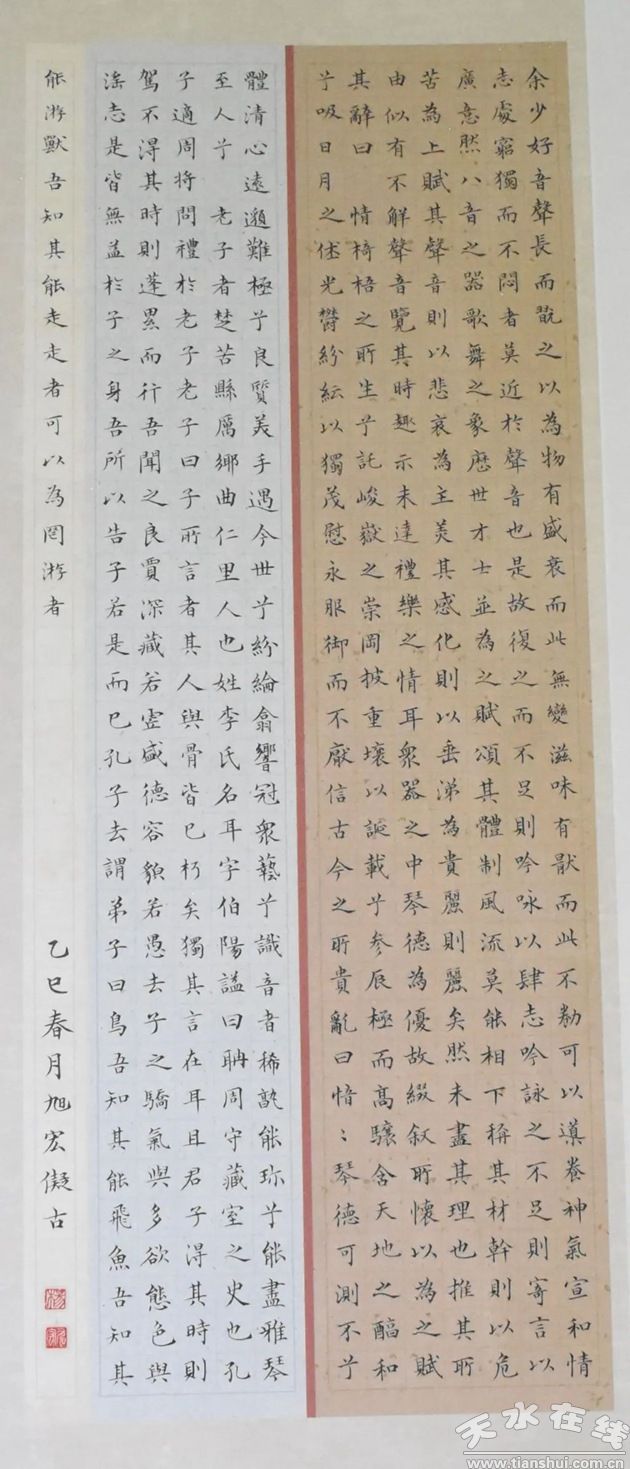 余少好音聲長而翫之以為物有盛衰而此無變滋味有猒而此不勌可以導養神氣宣和情
志處窮獨而不悶者莫近於聲音也是故復之而不足則吟咏以肆志吟詠之不足則寄言以
廣意然八音之器歌舞之象歷世才士並為之賦頌其體制風流莫能相下稱其材幹則以危
苦為上賦其聲音則以悲哀為主美其感化則以垂涕為貴麗則麗矣然未盡其理也推其所
由似有不解聲音覽其時趣示未達禮樂之情耳衆器之中琴德為優故綴叙所懷以為之賦
其辭曰 情椅梧之所生兮託峻嶽之崇岡披重壤以誕載兮参辰極而高驤含天地之醕和
兮吸日月之休光鬱紛紜以獨茂慰永服御而不厭信古今之所貴亂曰愔〻琴德可測不兮
體清心遠邈難極兮良質美手遇今世兮紛綸翕響冠衆藝兮識音者稀孰能珍兮能盡雅琴
至人兮 老子者楚苦縣厲鄉曲仁里人也姓李氏名耳字伯陽謚曰聃周守藏室之史也孔
子適周將問禮於老子老子曰子所言者其人與骨皆已朽矣獨其言在耳且君子得其時則
駕不得其時則蓬累而行吾聞之良賈深藏若虛盛德容貌若愚去子之驕氣與多欲態色與
淫志是皆無益於子之身吾所以告子若是而已孔子去謂弟子曰鳥吾知其能飛魚吾知其
能游獸吾知其能走走者可以為罔游者
乙巳春月旭宏儗古
天水在线
www.tianshui.com.cn